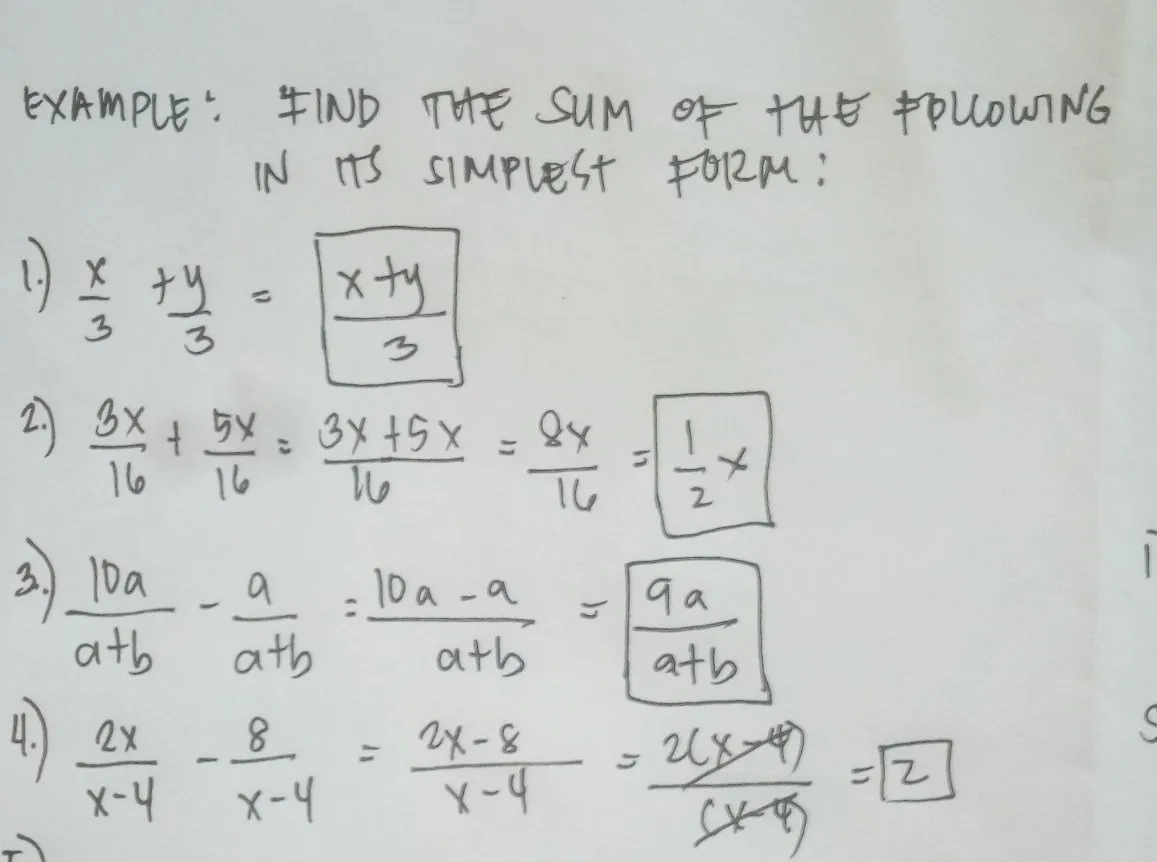 EXAMPLE: FIND THE SUM OF THE FOLLOWING
IN ITS SIMPLEST FORM:
1.) x/3 + y/3 = x+y/3
2.) 3x/16 + 5x/16 = 3x+5x/16 = 8x/16 = 1/2 x
3.) 10a/a+b - a/a+b = 10a-a/a+b = 9a/a+b
4.) 2x/x-4 - 8/x-4 = 2x-8/x-4 = 2(x-4)/(x-4) = 2